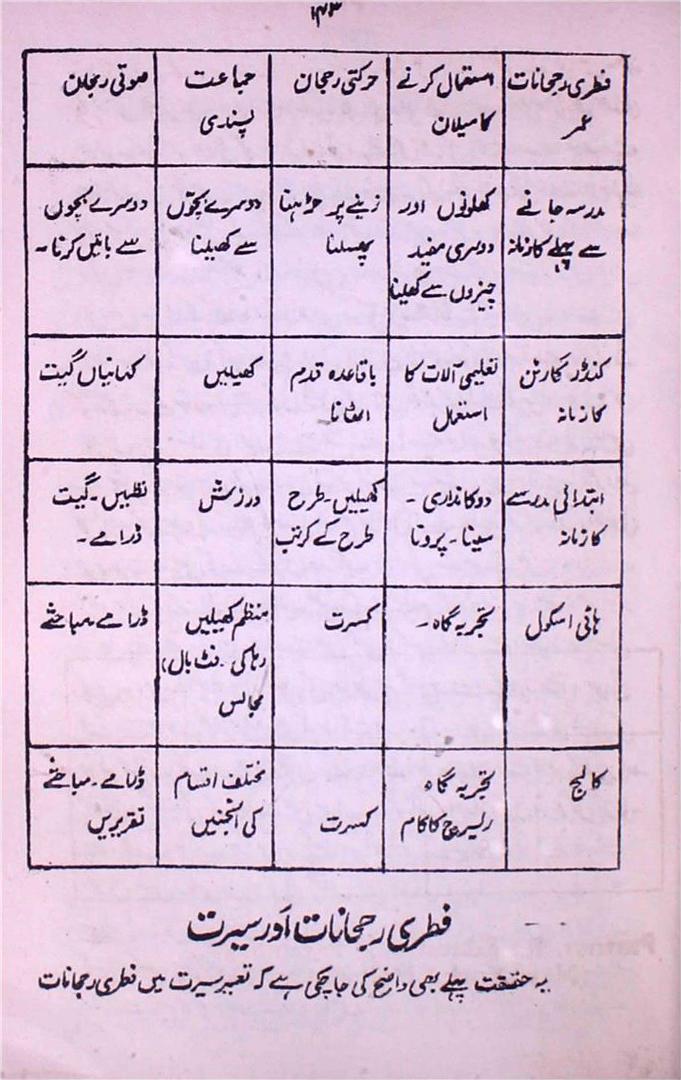 ۱۴۳
فطری رجحانات استعمال کرنے حرکتی رجحان جماعت صوتی رجحان
عمر کا میلان پسندی
مدرسہ جانے کھلونوں اور زینے پر چڑھنا دوسرے بچّوں دوسرے بچوں
سے پہلے کا زمانہ دوسری مفید پھسلنا سے کھیلنا سے باتیں کرنا۔
چیزوں سے کھیلنا
کنڈر گارٹن تعلیمی آلات کا باقاعدہ قدم کھیلیں کہانیاں گیت
کا زمانہ استعمال اٹھانا
ابتدائی مدرسے دوکانداری۔ کھیلیں۔ طرح ورزش نظمیں۔ گیت
کا زمانہ سینا۔ پرونا طرح کے کرتب ڈرامے۔
ہائی اسکول تجربہ گاہ۔ کسرت منظم کھیلیں ڈرامے۔ مباحثے
(ہاکی۔ فٹ بال)
مجالس
کالج تجربہ گاہ مختلف اقسام ڈرامے۔ مباحثے
ریسرچ کا کام کسرت کی انجمنیں تقریریں
فطری رجحانات اور سیرت
یہ حقیقت پہلے بھی واضح کی جا چکی ہے کہ تعمیر سیرت میں فطری رجحانات